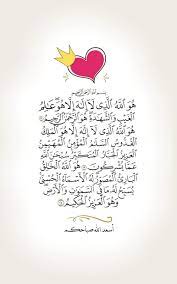 بسم الله الرحمن الرحيم
هُوَ اللَّهُ الَّذِي لَا إِلَٰهَ إِلَّا هُوَ عَالِمُ
الْغَيْبِ وَالشَّهَادَةِ هُوَ الرَّحْمَٰنُ الرَّحِيمُ
هُوَ اللَّهُ الَّذِي لَا إِلَٰهَ إِلَّا هُوَ الْمَلِكُ
الْقُدُّوسُ السَّلَامُ الْمُؤْمِنُ الْمُهَيْمِنُ
الْعَزِيزُ الْجَبَّارُ الْمُتَكَبِّرُ سُبْحَانَ اللَّهِ
عَمَّا يُشْرِكُونَ هُوَ اللَّهُ الْخَالِقُ
الْبَارِئُ الْمُصَوِّرُ لَهُ الْأَسْمَاءُ الْحُسْنَىٰ
يُسَبِّحُ لَهُ مَا فِي السَّمَاوَاتِ وَالْأَرْضِ
وَهُوَ الْعَزِيزُ الْحَكِيمُ
أسعد الله صباحكم